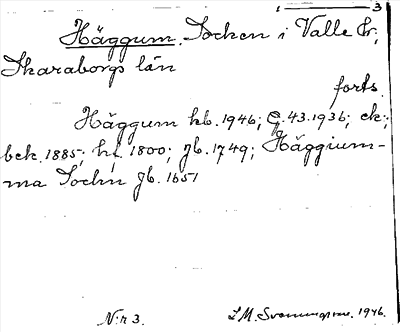 1 — 3
Häggum. Socken i Valle hr;
Skaraborgs län
forts.
Häggum kb. 1946; G. 43. 1936; ek.;
bek. 1885; hl. 1800; jb. 1749; Häggium-
ma Sochn jb. 1651
N:r 3. I.M. 1946.